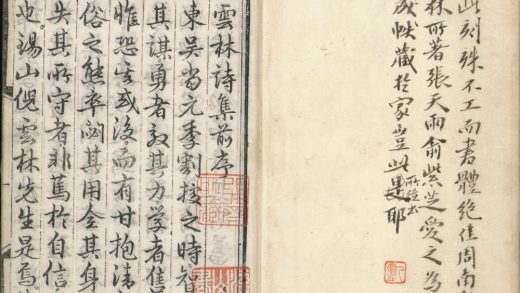 此刻殊不工而書體絕佳周南
林所著張天雨俞紫芝愛之為
成帙藏於家豈此
耶
雲林詩集前序
東吳當元季割據之時智
其謀勇者效其力學者售
睢恐
或後而有甘抱清
俗之態卒
其用全其身
失其所守者非篤於自信
也湯山倪雲林先生是焉